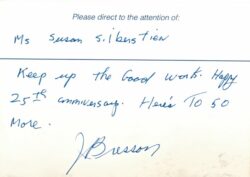 Please direct to the attention of:
Ms Susan Silberstien
Keep up the Good work. Happy
25th anniversary. Here's To 50
More.
J Bresson